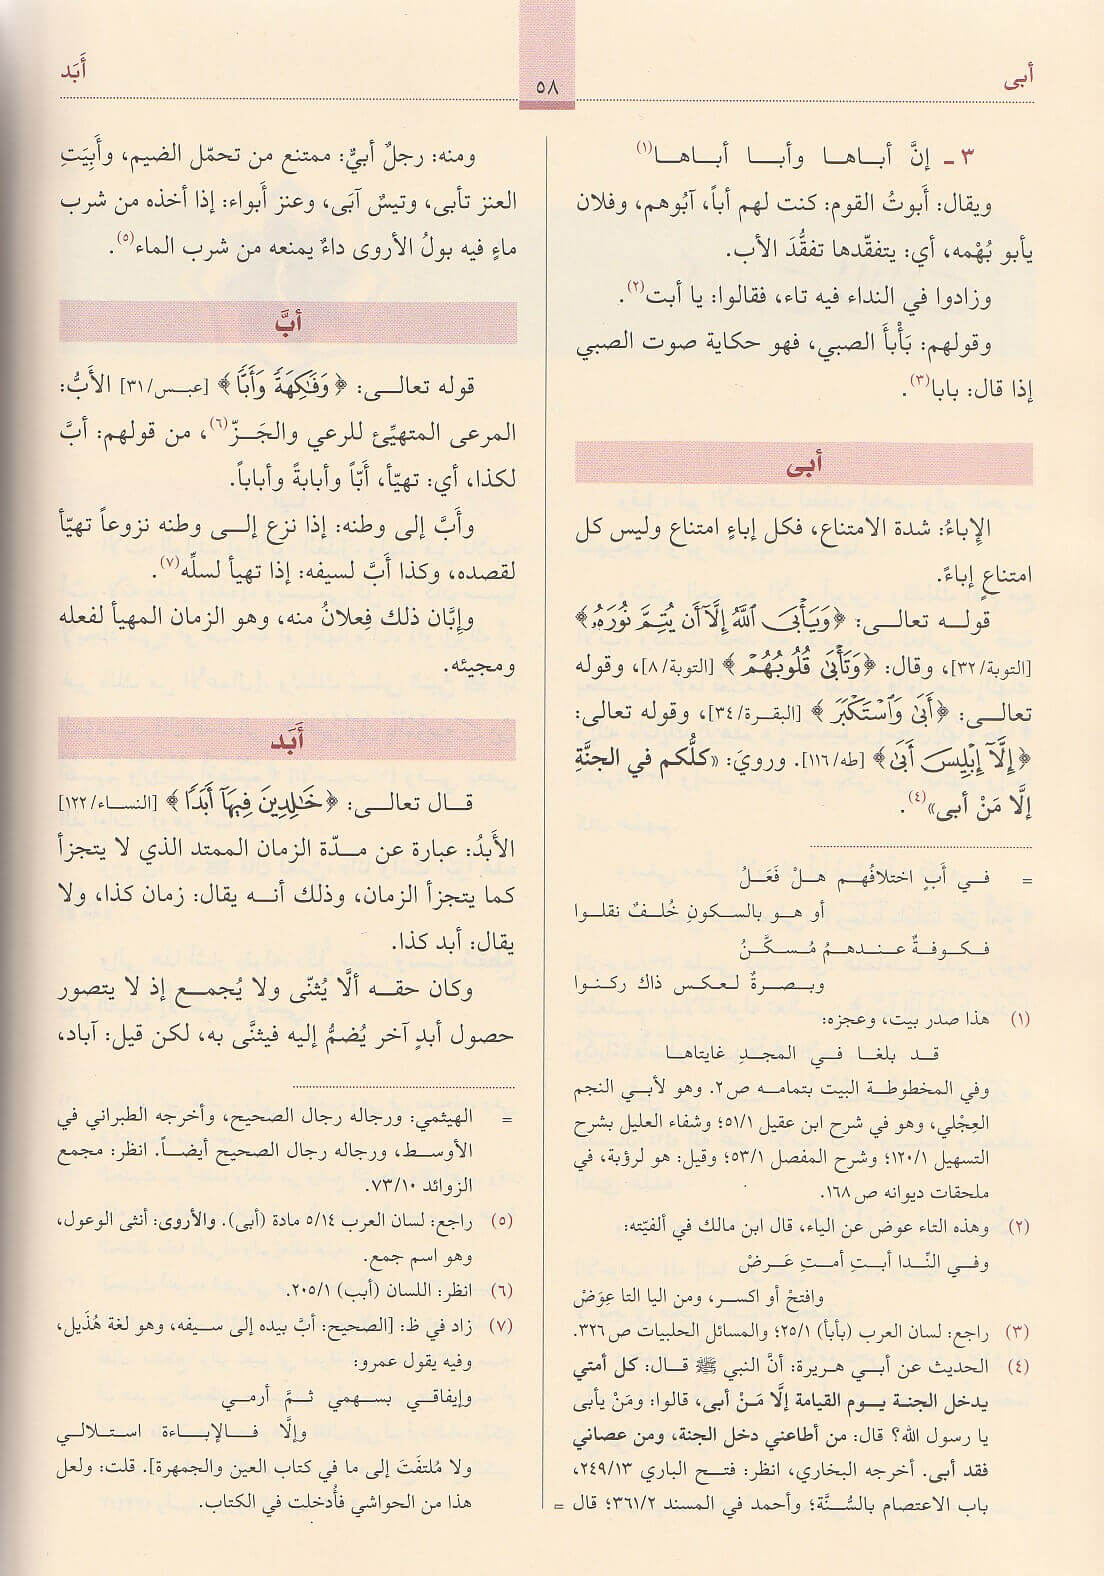 أبى
٥٨
أَبَد
٣ ـ إنَّ أبـاهـا وأبـا أبـاهـا(١)
ويقال: أَبوتُ القوم: كنت لهم أباً، آبُوهم، وفلان
يأبو بُهْمه، أي: يتفقّدها تفقُّدَ الأب.
وزادوا في النداء فيه تاء، فقالوا: يا أبت(٢).
وقولهم: بَأْبأَ الصبي، فهو حكاية صوت الصبي
إذا قال: بابا(٣).
أبى
الإِباءُ: شدة الامتناع، فكل إباءٍ امتناع وليس كل
امتناعٍ إباءً.
قولـه تعالـى: ﴿وَيَأْبَى ٱللَّهُ إِلَّآ أَن يُتِمَّ نُورَهُۥ﴾
[التوبة/٣٢]، وقال: ﴿وَتَأْبَىٰ قُلُوبُهُمْ﴾ [التوبة/٨]، وقوله
تعالـى: ﴿أَبَىٰ وَٱسْتَكْبَرَ﴾ [البقـرة/٣٤]، وقوله تعالى:
﴿إِلَّآ إِبْلِيسَ أَبَىٰ﴾ [طه/١١٦]. ورويَ: «كلُّكم في الجنَّةِ
إلَّا مَنْ أبى»(٤).
= فـي أَبٍ اختلافُهـم هلْ فَعَـلُ
أو هـو بالسكونِ خُلـفٌ نقلـوا
فـكـوفـةٌ عـنـدهـمُ مُـسـكَّـنُ
وبـصـرةٌ لـعـكـس ذاك ركـنـوا
(١) هذا صدر بيت، وعجزه:
قـد بلغـا فـي المجـدِ غايتاهـا
وفي المخطوطـة البيت بتمامـه ص٢. وهو لأبي النجم
العِجْلي، وهو في شرح ابن عقيل ٥١/١؛ وشفاء العليل بشرح
التسهيل ١٢٠/١؛ وشرح المفصل ٥٣/١؛ وقيل: هو لرؤبة، في
ملحقات ديوانه ص١٦٨.
(٢) وهذه التاء عوض عن الياء، قال ابن مالك في ألفيّته:
وفـي النِّـدا أبـتِ أمـتِ عَـرضْ
وافتحْ أو اكسر، ومن اليا التا عِوَضْ
(٣) راجع: لسان العرب (بأبأ) ٢٥/١؛ والمسائل الحلبيات ص٣٢٦.
(٤) الحديث عن أبـي هريرة: أنَّ النبي ﷺ قـال: كل أمتي
يدخل الجنة يـوم القيامة إلَّا مَـنْ أبى، قالوا: ومَنْ يأبى
يا رسول الله؟ قال: من أطاعني دخل الجنة، ومن عصاني
فقد أبى. أخرجه البخاري، انظر: فتـح الباري ٢٤٩/١٣،
باب الاعتصام بالسُّنَّة؛ وأحمد في المسند ٣٦١/٢؛ قال =
ومنه: رجلٌ أبيٌّ: ممتنع من تحمّل الضيم، وأَبِيَتِ
العنز تأبى، وتيسٌ آبَى، وعنز أَبواء: إذا أخذه من شرب
ماءٍ فيه بولُ الأروى داءٌ يمنعه من شرب الماء(٥).
أبَّ
قوله تعالـى: ﴿وَفَٰكِهَةً وَأَبًّا﴾ [عبـس/٣١] الأَبُّ:
المرعى المتهيِّئ للرعي والجَـزّ(٦)، من قولهم: أبَّ
لكذا، أي: تهيّأ، أَبّاً وأبابةً وأباباً.
وأَبَّ إلى وطنه: إذا نزع إلـى وطنه نزوعاً تهيّأ
لقصده، وكذا أَبَّ لسيفه: إذا تهيأ لسلِّه(٧).
وإبَّان ذلك فِعلانُ منه، وهو الزمان المهيأ لفعله
ومجيئه.
أَبَد
قـال تعالـى: ﴿خَٰلِدِينَ فِيهَآ أَبَدًا﴾ [النساء/١٢٢]
الأَبدُ: عبارة عن مـدّة الزمان الممتد الذي لا يتجزأ
كما يتجزأ الزمان، وذلك أنـه يقال: زمان كذا، ولا
يقال: أبد كذا.
وكان حقـه ألَّا يُثنّى ولا يُجمـع إذ لا يتصور
حصول أبدٍ آخر يُضمُّ إليه فيثنَّى به، لكن قيل: آباد،
= الهيثمي: ورجاله رجال الصحيح، وأخرجه الطبراني في
الأوسـط، ورجاله رجال الصحيح أيضـاً. انظر: مجمع
الزوائد ٧٣/١٠.
(٥) راجع: لسان العرب ٥/١٤ مادة (أبى). والأروى: أنثى الوعول،
وهو اسم جمع.
(٦) انظر: اللسان (أبب) ٢٠٥/١.
(٧) زاد في ظ: [الصحيح: أبَّ بيده إلى سـيفه، وهو لغة هُذَيل،
وفيه يقول عمرو:
وإيفاقـي بسـهمي ثـمَّ أرمـي
وإلَّا فـالإبـاءة اسـتلالـي
ولا مُلتفَتَ إلى ما في كتاب العين والجمهرة]. قلت: ولعل
هذا من الحواشي فأُدخلت في الكتاب.